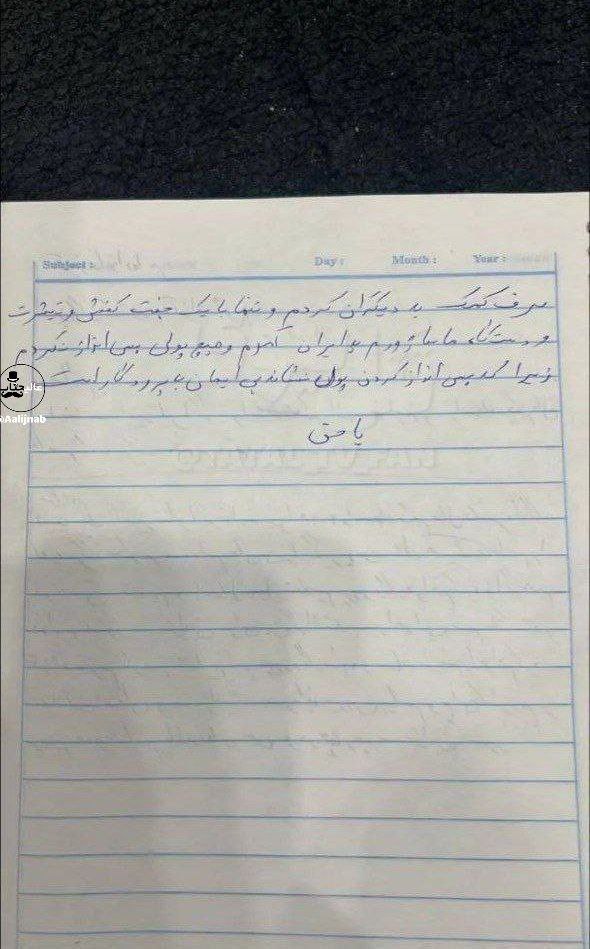 Subject :
Day :
Month :
Year :
صرف کمک به دیگران کردم و تنها با یک جفت کفش و تیشرت
و دستگاه ماساژورم به ایران آمدم و هیچ پولی پس انداز نکردم
زیرا که پس انداز کردن پول نشانه بی ایمانی به پروردگار است
یا حق
@Aalijnab